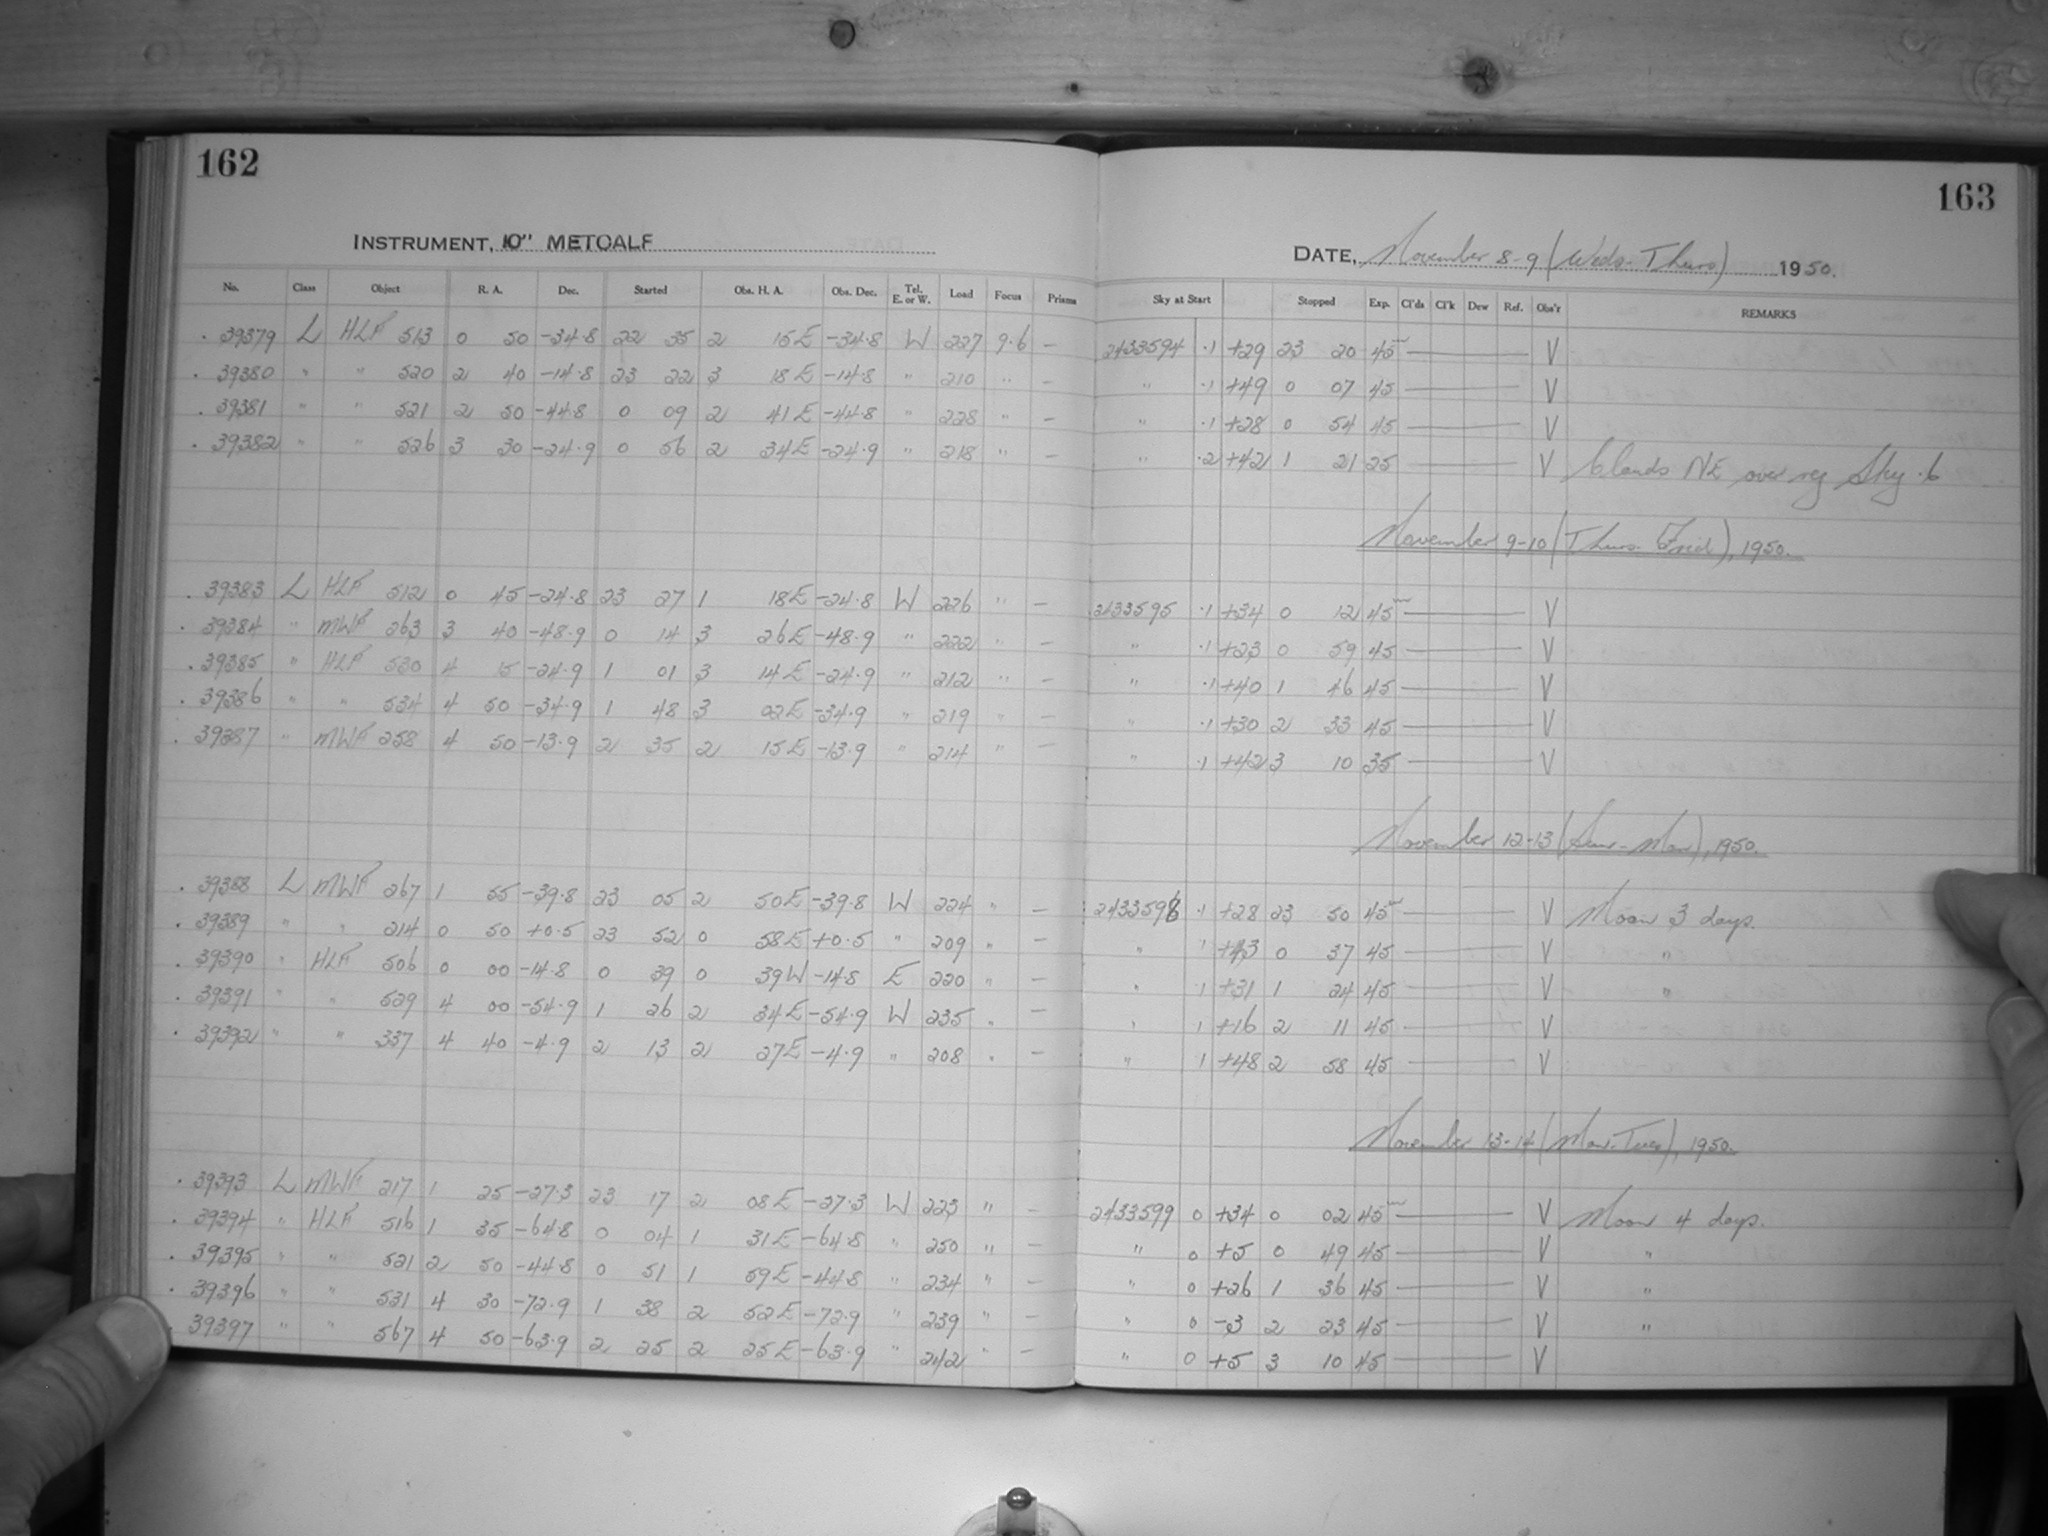 162
163
INSTRUMENT, 10" METCALF
DATE, November 8-9 (Weds-Thurs) 1950.
No. Class Object R. A. Dec. Started Obs. H. A. Obs. Dec. Tel. E. or W. Load Focus Prisms Sky at Start Stopped Exp. Cl'ds Cl'k Dew Ref. Obs'r REMARKS
39379 L HLF 513 0 50 -34.8 22 35 2 15E -34.8 W 227 9.6 - 2433594 .1 +29 23 20 45 V
39380 " " 520 2 40 -14.8 23 22 3 18E -14.8 " 210 " - " .1 +49 0 07 45 V
39381 " " 521 2 50 -44.8 0 09 2 41E -44.8 " 228 " - " .1 +28 0 54 45 V
39382 " " 526 3 30 -24.9 0 56 2 34E -24.9 " 218 " - " .2 +42 1 21 25 V Clouds NE over reg Sky .6
November 9-10 (Thurs-Frid), 1950.
39383 L HLF 512 0 45 -24.8 23 27 1 18E -24.8 W 226 " - 2433595 .1 +34 0 12 45 V
39384 " MWF 263 3 40 -48.9 0 14 3 26E -48.9 " 222 " - " .1 +23 0 59 45 V
39385 " HLF 530 4 15 -24.9 1 01 3 14E -24.9 " 212 " - " .1 +40 1 46 45 V
39386 " " 534 4 50 -34.9 1 48 3 02E -34.9 " 219 " - " .1 +30 2 33 45 V
39387 " MWF 258 4 50 -13.9 2 35 2 15E -13.9 " 214 " - " .1 +42 3 10 35 V
November 12-13 (Sun-Mon), 1950.
39388 L MWF 267 1 55 -39.8 23 05 2 50E -39.8 W 224 " - 2433598 .1 +28 23 50 45 V Moon 3 days.
39389 " " 214 0 50 +0.5 23 52 0 58E +0.5 " 209 " - " .1 +43 0 37 45 V "
39390 " HLF 506 0 00 -14.8 0 39 0 39W -14.8 E 220 " - " .1 +31 1 24 45 V "
39391 " " 529 4 00 -54.9 1 26 2 34E -54.9 W 235 " - " .1 +16 2 11 45 V
39392 " " 337 4 40 -4.9 2 13 2 27E -4.9 " 208 " - " .1 +48 2 58 45 V
November 13-14 (Mon-Tues), 1950.
39393 L MWF 217 1 25 -27.3 23 17 2 08E -27.3 W 223 " - 2433599 0 +34 0 02 45 V Moon 4 days.
39394 " HLF 516 1 35 -64.8 0 04 1 31E -64.8 " 250 " - " 0 +5 0 49 45 V "
39395 " " 521 2 50 -44.8 0 51 1 59E -44.8 " 234 " - " 0 +26 1 36 45 V "
39396 " " 531 4 30 -72.9 1 38 2 52E -72.9 " 239 " - " 0 -3 2 23 45 V "
39397 " " 567 4 50 -63.9 2 25 2 25E -63.9 " 242 " - " 0 +5 3 10 45 V